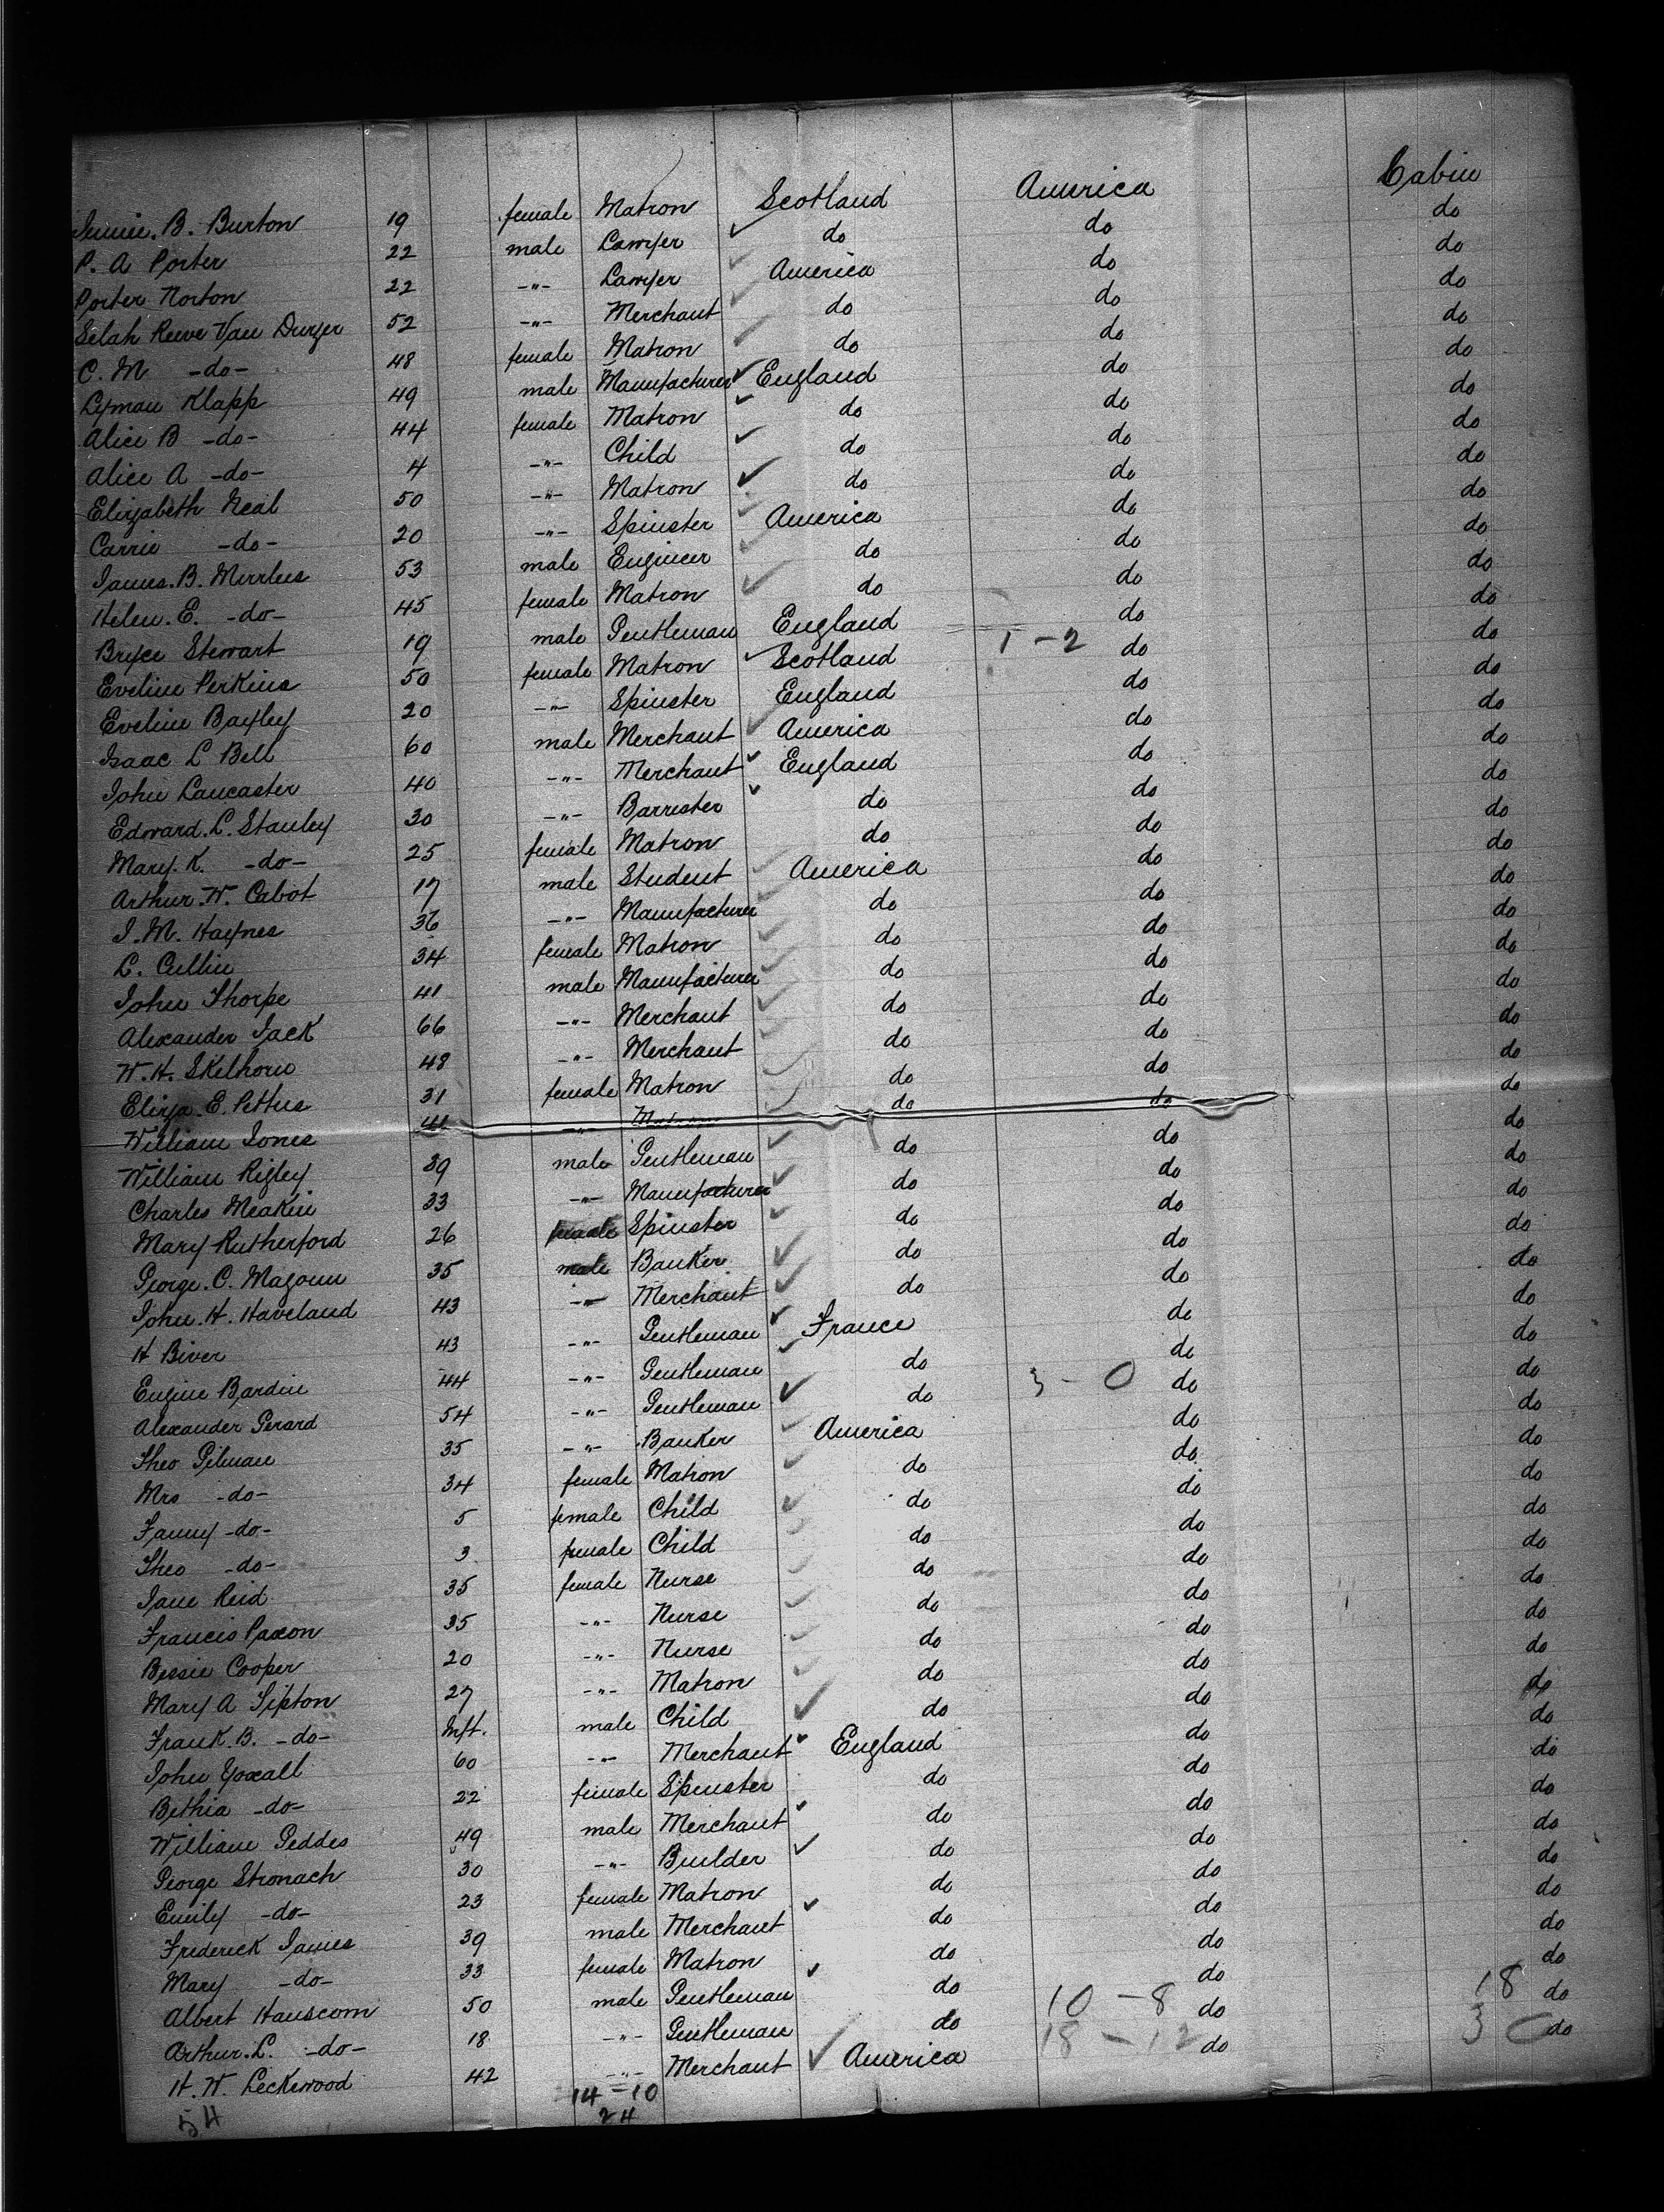 Jennie. B. Burton 19 female Matron Scotland America Cabin
P. A Porter 22 male Lawyer do do do
Porter Norton 22 -"- Lawyer America do do
Selah Reeve Van Duzer 52 -"- Merchant do do do
C. M -do- 48 female Matron do do do
Lyman Klapp 49 male Manufacturer England do do
Alice B -do- 44 female Matron do do do
Alice A -do- 4 -"- Child do do do
Elizabeth Neal 50 -"- Matron do do do
Carrie -do- 20 -"- Spinster America do do
James. B. Mirrlees 53 male Engineer do do do
Helen. E. -do- 45 female Matron do do do
Bryce Stewart 19 male Gentleman England do do
Eveline Perkins 50 female Matron Scotland 1 - 2 do do
Eveline Bayley 20 -"- Spinster England do do
Isaac L Bell 60 male Merchant America do do
John Lancaster 40 -"- Merchant England do do
Edward. L. Stanley 30 -"- Barrister do do do
Mary. K. -do- 25 female Matron do do do
Arthur. W. Cabot 17 male Student America do do
J. M. Haynes 36 -"- Manufacturer do do do
L. Cullin 34 female Matron do do do
John Thorpe 41 male Manufacturer do do do
Alexander Jack 66 -"- Merchant do do do
W. H. Skelhorn 48 -"- Merchant do do do
Eliza. E. Pettus 31 female Matron do do do
William Jones 41 -"- Matron do do do
William Rigley 39 male Gentleman do do do
Charles Meakin 33 -"- Manufacturer do do do
Mary Rutherford 26 female Spinster do do do
George. C. Magoun 35 male Banker do do do
John. H. Haveland 43 -"- Merchant do do do
H Biver 43 -"- Gentleman France do do
Eugine Bardin 44 -"- Gentleman do do do
Alexander Gerard 54 -"- Gentleman do 3 - 0 do do
Theo Gilman 35 -"- Banker America do do
Mrs -do- 34 female Matron do do do
Fanny -do- 5 female Child do do do
Theo -do- 3 female Child do do do
Jane Reid 35 female Nurse do do do
Francis Paxon 35 -"- Nurse do do do
Bessie Cooper 20 -"- Nurse do do do
Mary A Tipton 27 -"- Matron do do do
Frank. B. -do- Inft. male Child do do do
John Yoxall 60 -"- Merchant England do do
Bethia -do- 22 female Spinster do do do
William Geddes 49 male Merchant do do do
George Stronach 30 -"- Builder do do do
Emily -do- 23 female Matron do do do
Frederick James 39 male Merchant do do do
Mary -do- 33 female Matron do do do
Albert Hanscom 50 male Gentleman do do do
Arthur. L. -do- 18 -"- Gentleman do 10 - 8 do 18 do
H. W. Leckewood 42 -"- Merchant America 18 - 12 do 3 0 do
54 14 - 10
24